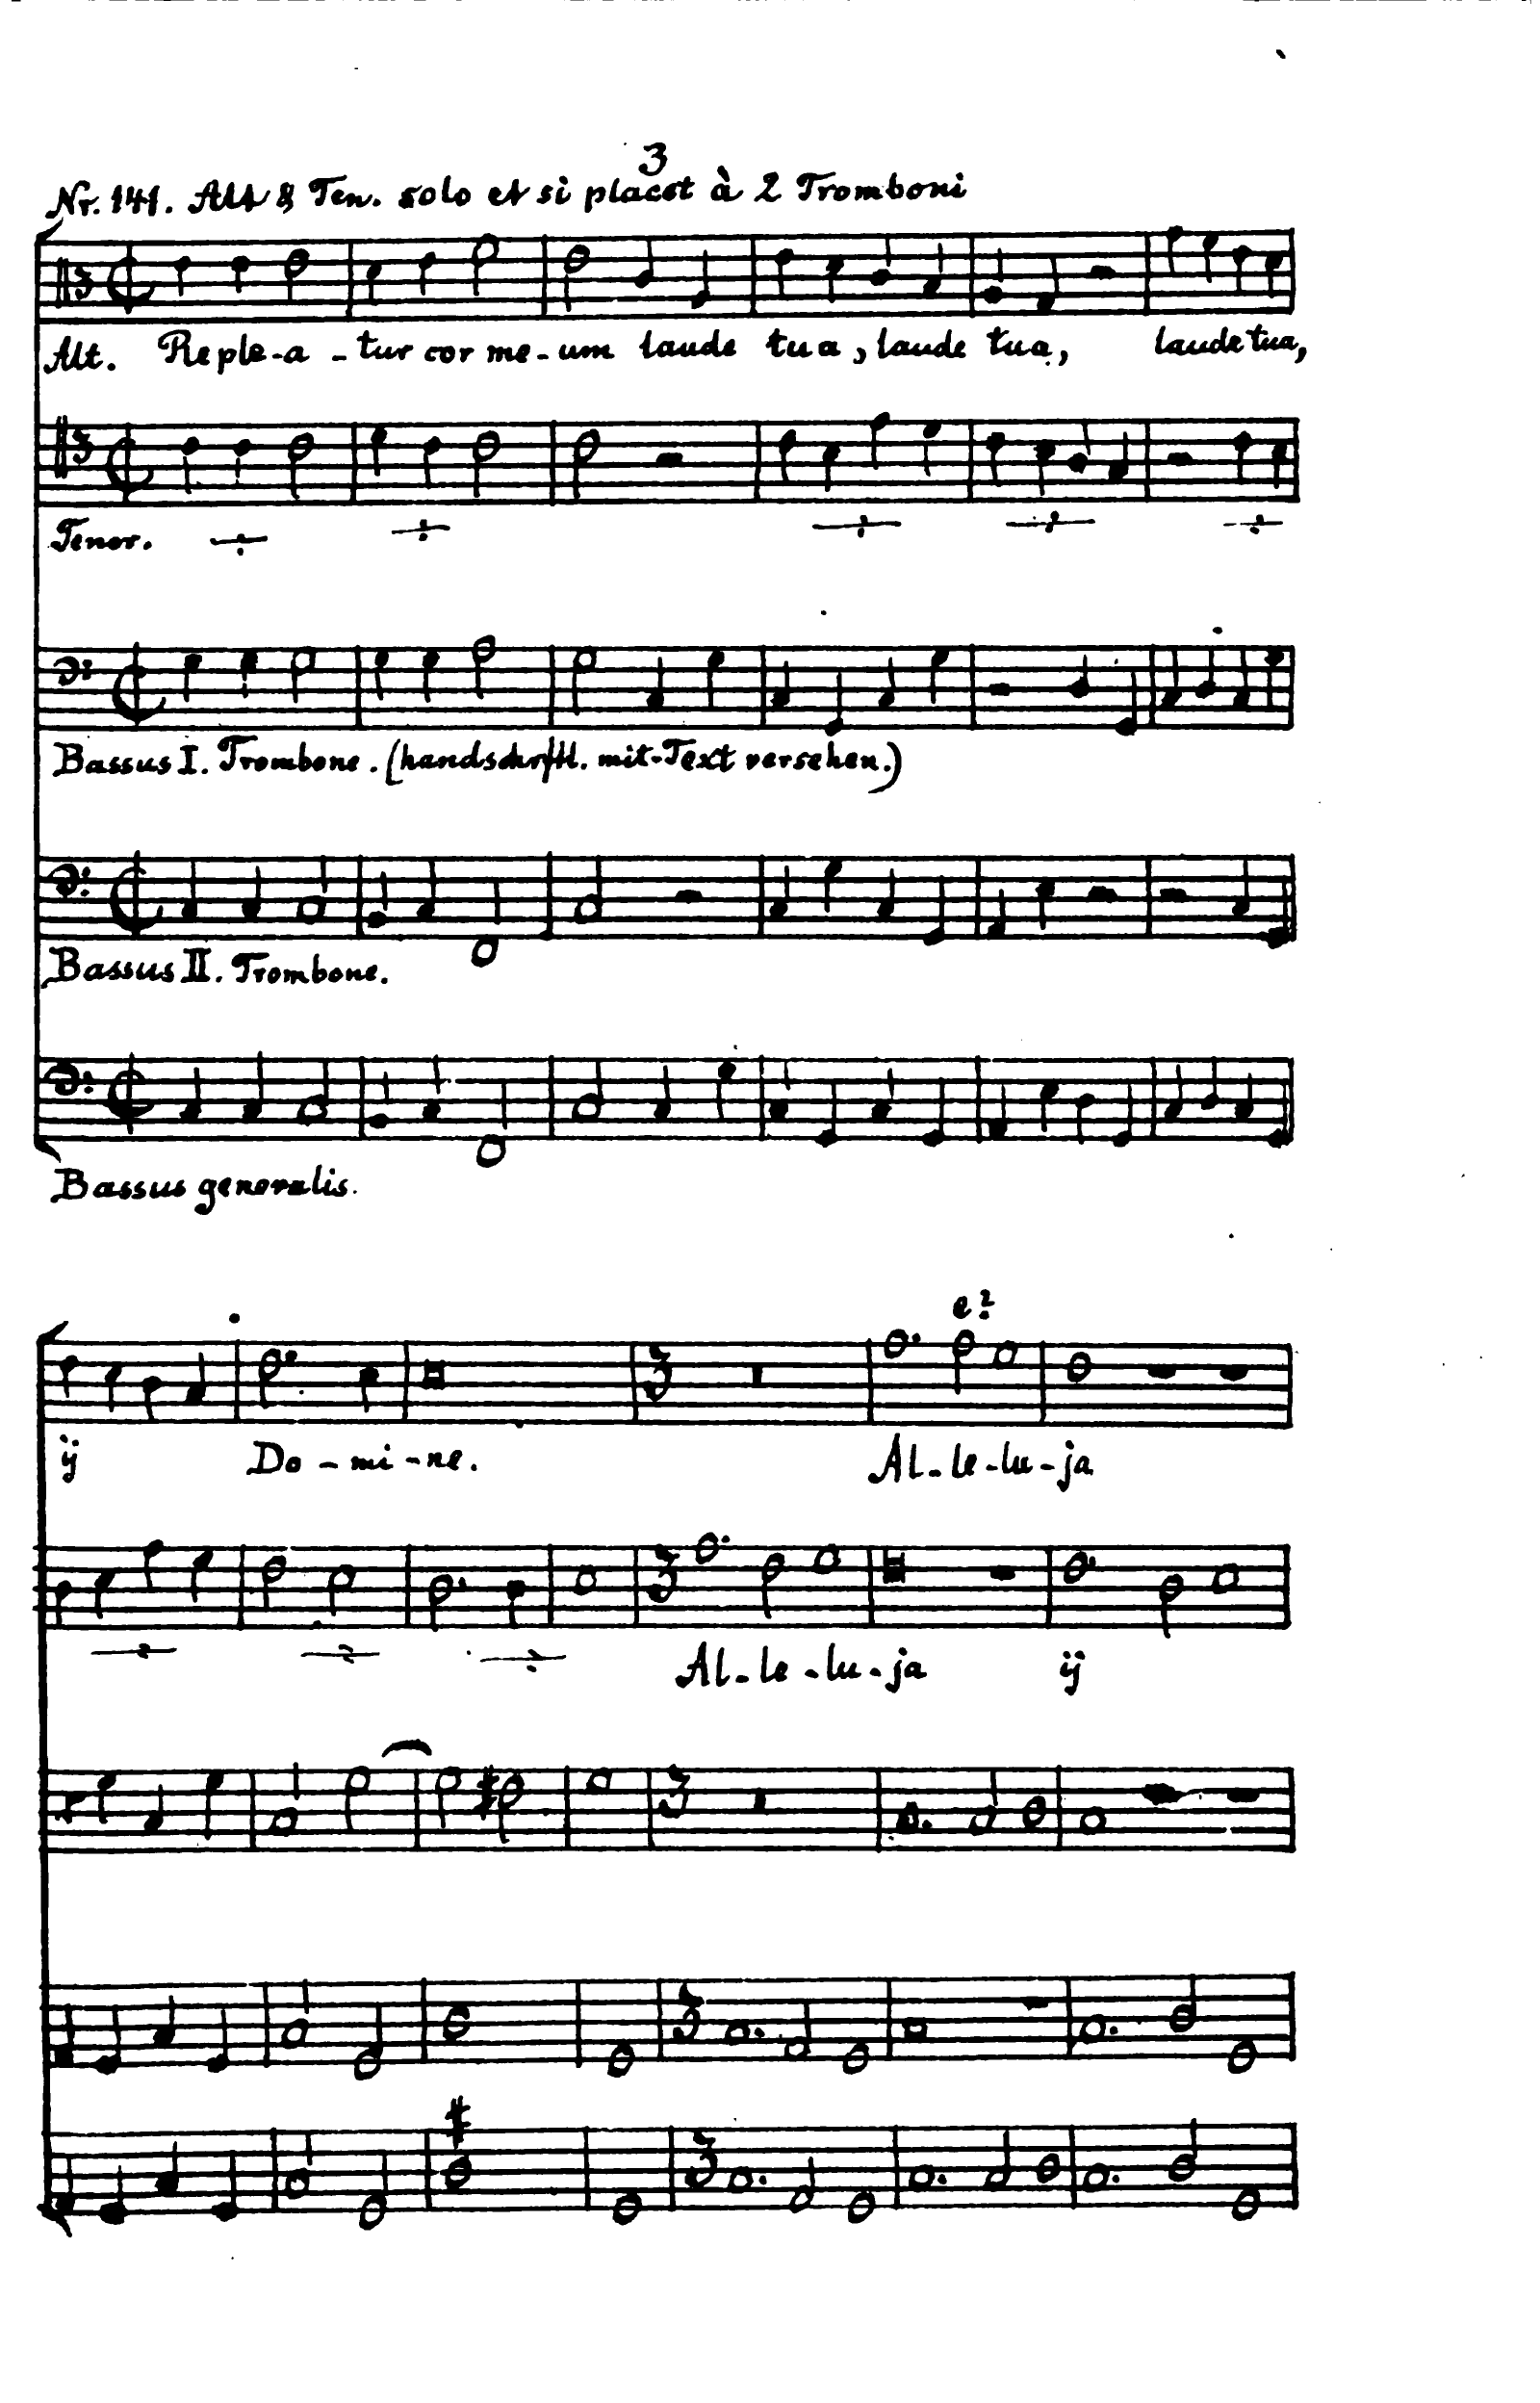 3
Nr. 141. Alt & Ten. solo et si placet à 2 Tromboni
Alt. Reple-a-tur cor me-um laude tua, laude tua, laude tua,
Tenor.
Bassus I. Trombone. (handschrftl. mit Text versehen.)
Bassus II. Trombone.
Bassus generalis.
e?
ij Do-mi-ne. Al-le-lu-ja
3
Al-le-lu-ja ij
3
3
3
3